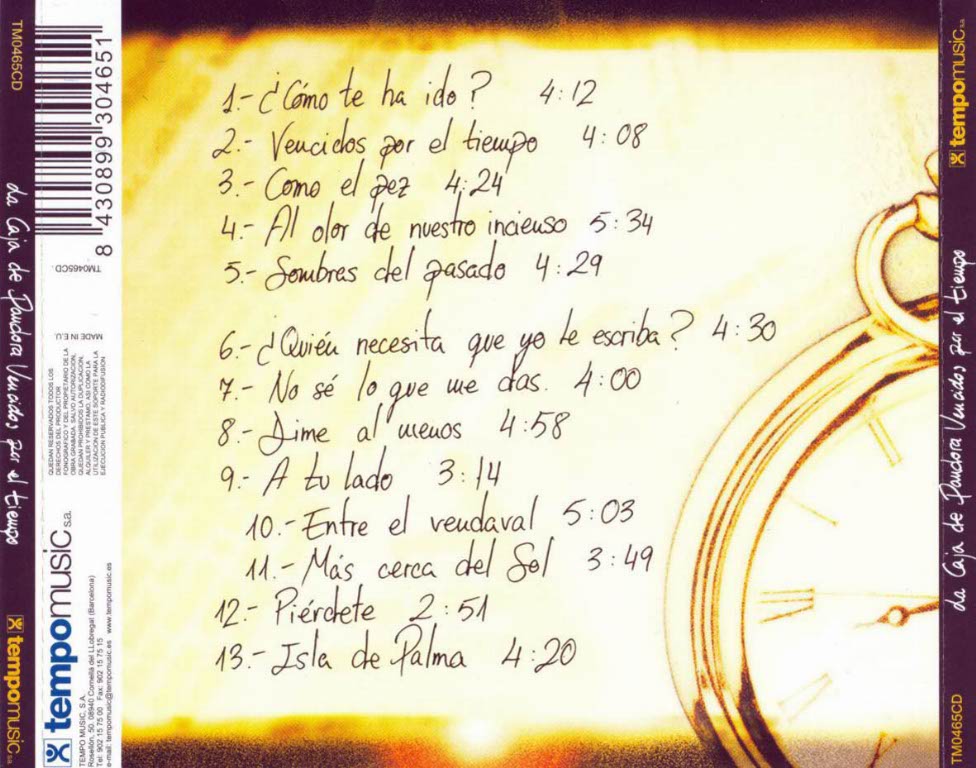 1.- ¿Cómo te ha ido? 4:12
2.- Vencidos por el tiempo 4:08
3.- Como el pez 4:24
4.- Al olor de nuestro incienso 5:34
5.- Sombras del pasado 4:29
6.- ¿Quién necesita que yo le escriba? 4:30
7.- No sé lo que me das. 4:00
8.- Dime al menos 4:58
9.- A tu lado 3:14
10.- Entre el vendaval 5:03
11.- Más cerca del Sol 3:49
12.- Piérdete 2:51
13.- Isla de Palma 4:20
TM0465CD
La Caja de Pandora Vencidos por el tiempo
tempomusic s.a.
8 430899 304651
TM0465CD.
MADE IN E.U.
QUEDAN RESERVADOS TODOS LOS
DERECHOS DEL PRODUCTOR
FONOGRAFICO Y DEL PROPIETARIO DE LA
OBRA GRABADA. SALVO AUTORIZACION,
QUEDAN PROHIBIDOS LA DUPLICACION,
ALQUILER Y PRESTAMO, ASI COMO LA
UTILIZACION DE ESTE SOPORTE PARA LA
EJECUCION PUBLICA Y RADIODIFUSION
tempomusic s.a.
TEMPO MUSIC, S.A.
Rosellón, 50. 08940 Cornellà del LLobregat (Barcelona)
Tel: 902 15 75 00 Fax: 902 15 75 15
e-mail: tempomusic@tempomusic.es www.tempomusic.es
tempomusic s.a.
La Caja de Pandora Vencidos por el tiempo
TM0465CD